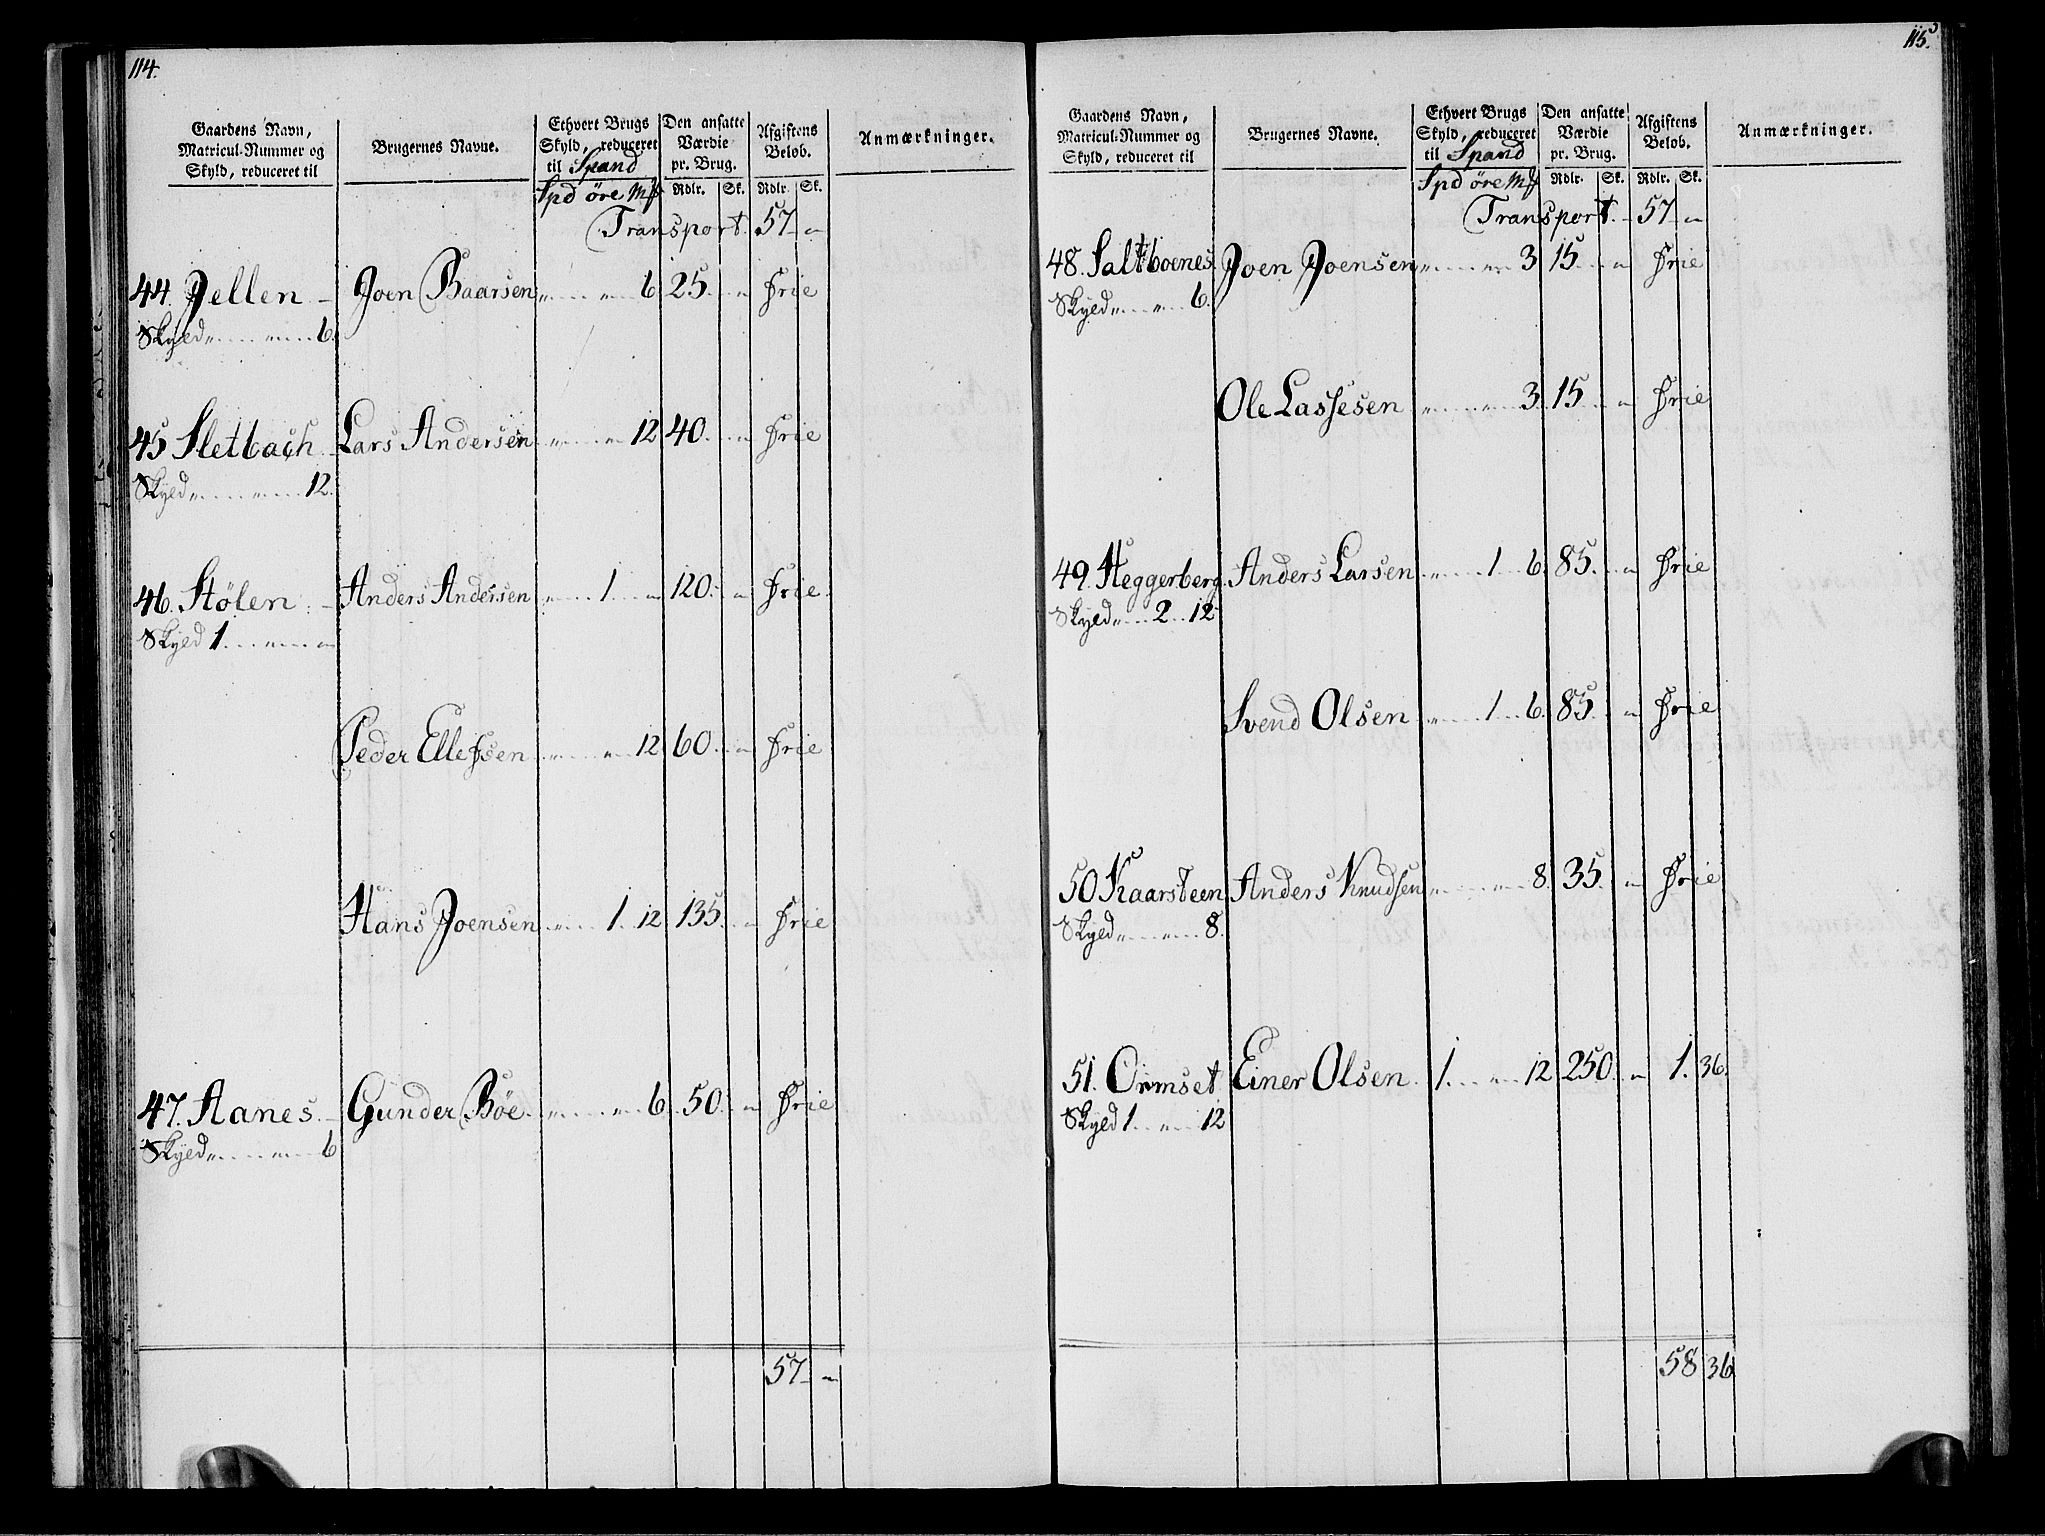 114.
Gaardens Navn, Matricul-Nummer og Skyld, reduceret til
Brugernes Navne.
Ethvert Brugs Skyld, reduceret til Spand
Den ansatte Værdie pr. Brug.
Afgiftens Beløb.
Anmærkninger.
Spd øre Mk Rdlr. Sk. Rdlr. Sk.
Transport. 57 "
44. Jellen - Joen Baarsen " " 6. 25. " Frie
Skyld " " 6.
45 Sletbach. Lars Andersen " " 12 40. " Frie
Skyld " " 12.
46. Stølen. - Anders Andersen " 1. " 120. " Frie.
Skyld 1. " "
Peder Ellefsen " " 12 60. " Frie
Hans Joensen " 1. 12 135. " Frie
47. Aanes. - Gunder Bøe. " " 6. 50. " Frie
Skyld " " 6
57 "
115.
Gaardens Navn, Matricul-Nummer og Skyld, reduceret til
Brugernes Navne.
Ethvert Brugs Skyld, reduceret til Spand
Den ansatte Værdie pr. Brug.
Afgiftens Beløb.
Anmærkninger.
Spd øre Mk Rdlr. Sk. Rdlr. Sk.
Transport. 57 "
48. Saltboenes. Joen Joensen " " 3 15. " Frie
Skyld " " 6.
Ole Lassesen " " 3. 15. " Frie
49. Heggerberg. Anders Larsen " 1 6. 85. " Frie
Skyld " 2. 12
Svend Olsen " 1. 6. 85. " Frie
50 Kaarsteen Anders Knudsen " " 8. 35. " Frie
Skyld " " 8.
51. Ormset Einer Olsen. 1. " 12 250. " 1. 36.
Skyld 1. " 12
58 36